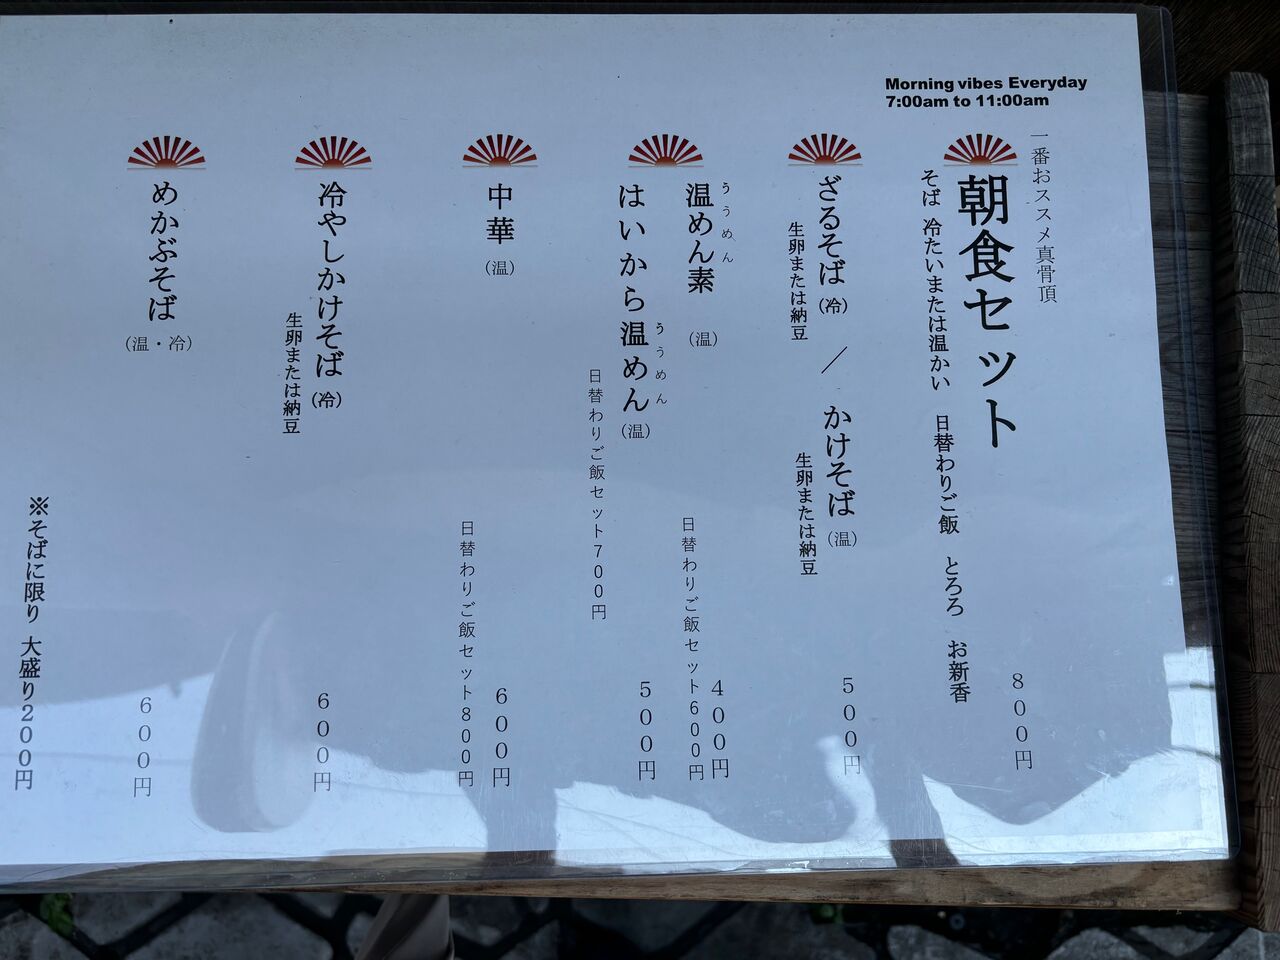 Morning vibes Everyday
7:00am to 11:00am
一番おススメ真骨頂
朝食セット
800円
そば 冷たいまたは温かい 日替わりご飯 とろろ お新香
ざるそば（冷）／かけそば（温）
500円
生卵または納豆
生卵または納豆
ううめん
温めん素（温）
400円
日替わりご飯セット600円
ううめん
はいから温めん（温）
500円
日替わりご飯セット700円
中華（温）
600円
日替わりご飯セット800円
冷やしかけそば（冷）
600円
生卵または納豆
めかぶそば（温・冷）
600円
※そばに限り 大盛り200円